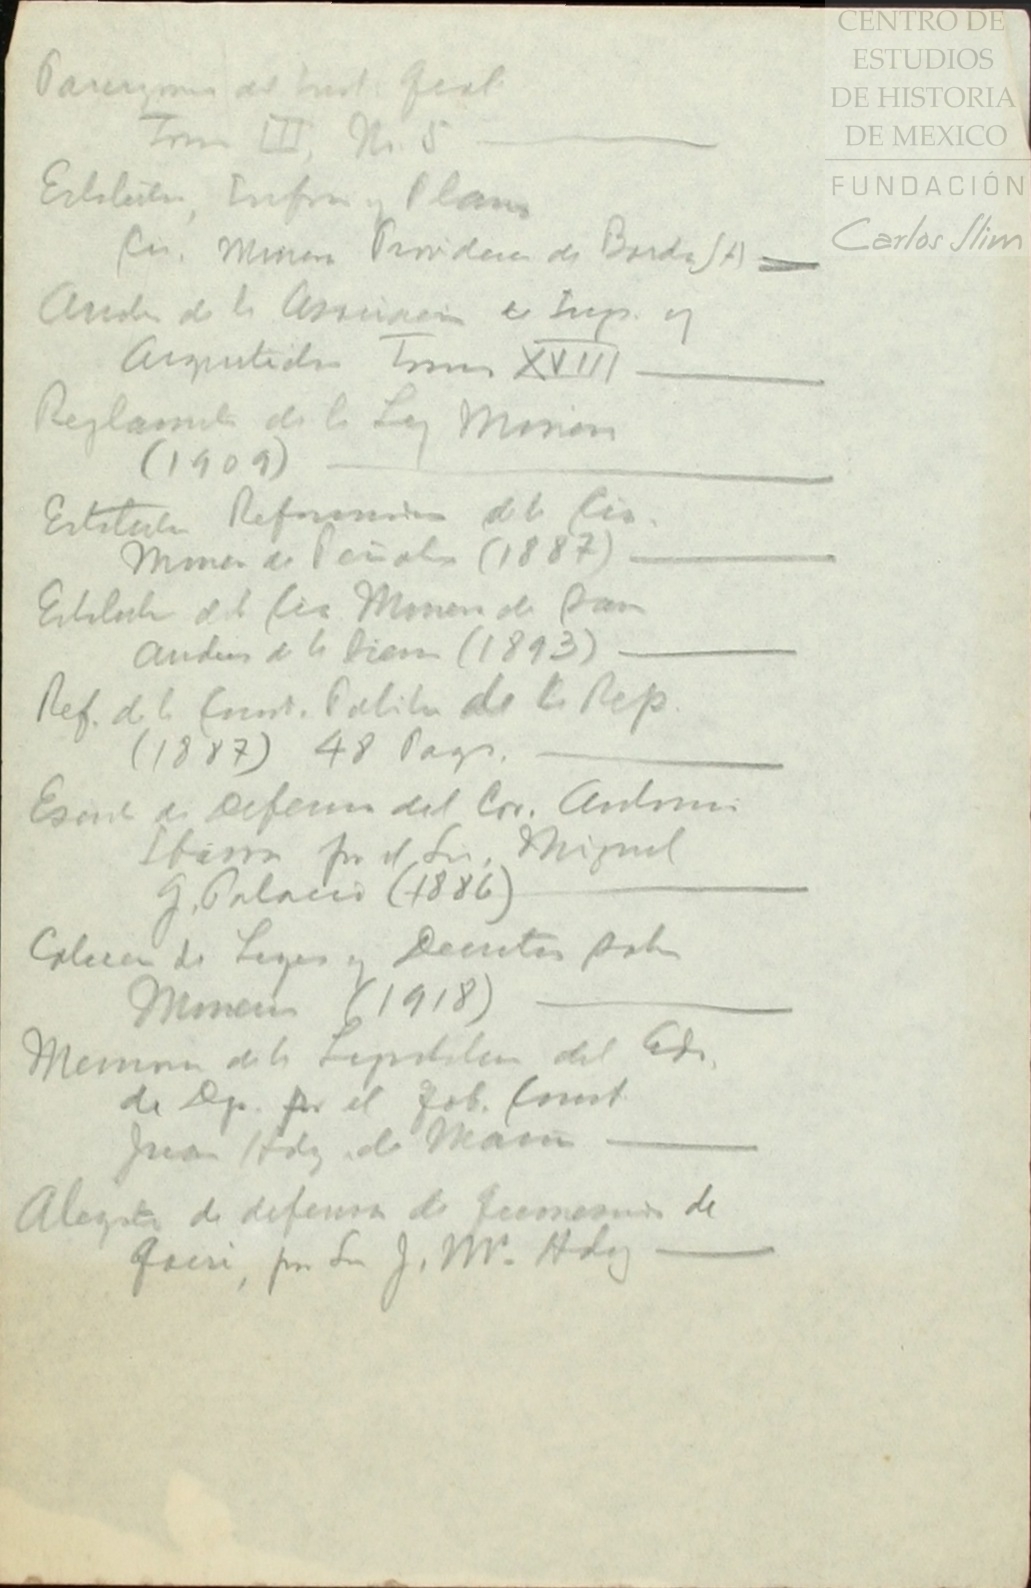 CENTRO DE
ESTUDIOS
DE HISTORIA
DE MEXICO
FUNDACIÓN
Carlos Slim
Parergones del Inst. Geol.
Tomo III, No. 5
Estatutos, Informe y Planos
Cia. Minera Providencia de Borda
Anales de la Asociacion de Ings. y
Arquitectos Tomo XVIII
Reglamento de la Ley Minera
(1909)
Estatutos Reformados de la Cia.
Minera de Peñoles (1887)
Estatutos de la Cia Minera de San
Andres de la Sierra (1893)
Ref. de la Const. Politica de la Rep.
(1887) 48 Pags.
de Defensa del Cor. Antonio
Ibarra por el Lic. Miguel
G. Palacio (1886)
Coleccion de Leyes y Decretos sobre
Mineria (1918)
Memoria de la del Edo.
de Dgo. por el Gob. Const
Juan Hdz. de Marin
de defensa de de
por Lic J. M. Hdz